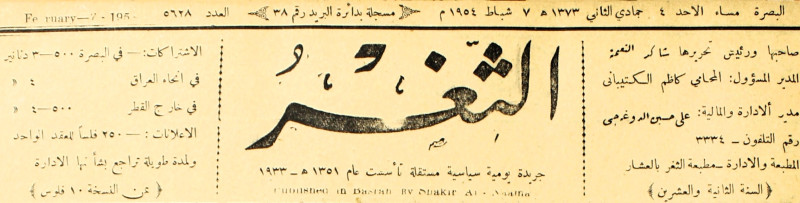 البصرة مساء الاحد ٤ جمادي الثاني ١٣٧٣ هـ ٧ شباط ١٩٥٤ م ﴿مسجلة بدائرة البريد رقم ٣٨﴾ العدد ٥٦٢٨ February-7-195
صاحبها ورئيس تحريرها شاكر النعمة
المدير المسؤول: المحامي كاظم الكتيباني
مدير الادارة والمالية: علي حسين الدوغرجي
رقم التلفون – ٣٣٣٤
المطبعة والادارة – مطبعة الثغر بالعشار
﴿السنة الثانية والعشرين﴾
الثغر
جريدة يومية سياسية مستقلة تأسست عام ١٣٥١ هـ – ١٩٣٣
Published in Basrah By Shakir Al-Naama
الاشتراكات: – في البصرة ٥٠٠-٣ دنانير
في انحاء العراق ٤ »
في خارج القطر ٥٠٠-٤ »
الاعلانات: – ٢٥٠ فلساً للعقد الواحد
ولمدة طويلة تراجع بشأنها الادارة
﴿ثمن النسخة ١٠ فلوس﴾